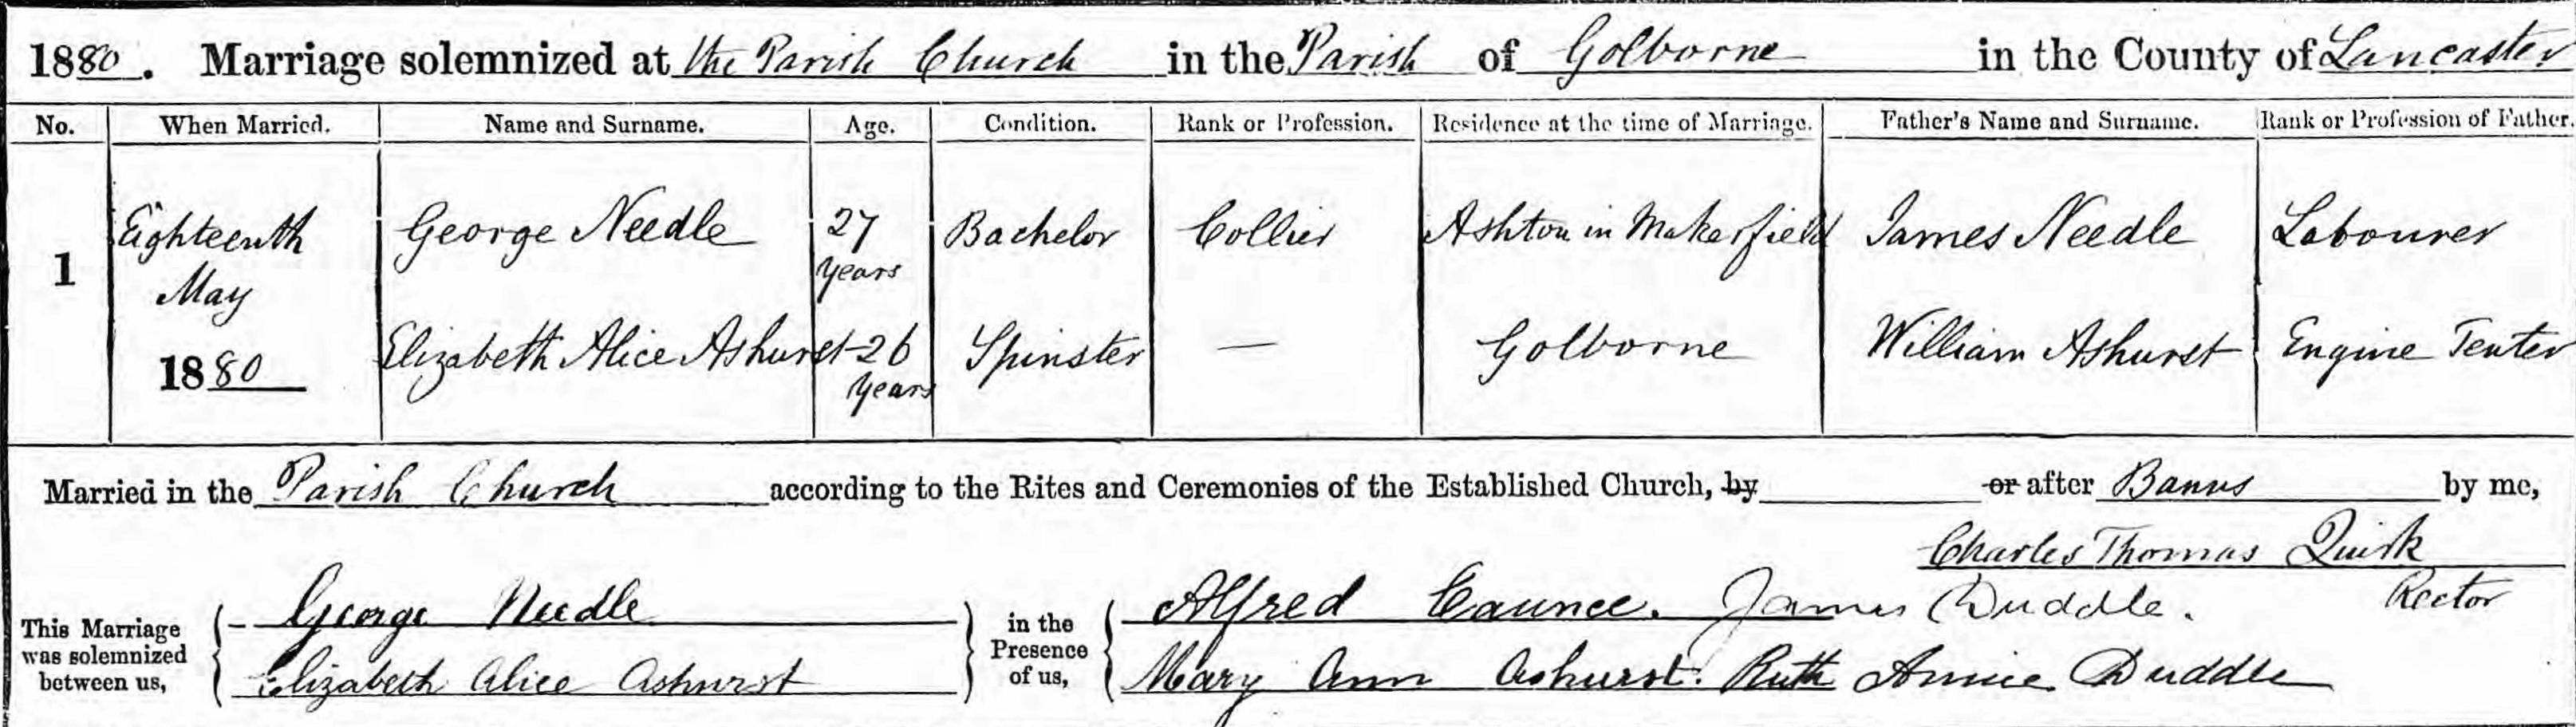 1880. Marriage solemnized at the Parish Church in the Parish of Golborne in the County of Lancaster
No. When Married. Name and Surname. Age. Condition. Rank or Profession. Residence at the time of Marriage. Father's Name and Surname. Rank or Profession of Father.
1 Eighteenth May 1880 George Needle 27 years Bachelor Collier Ashton in Makerfield James Needle Labourer
Elizabeth Alice Ashurst 26 years Spinster — Golborne William Ashurst Engine Tenter
Married in the Parish Church according to the Rites and Ceremonies of the Established Church, by or after Banns by me,
Charles Thomas Quirk
Rector
This Marriage was solemnized between us, George Needle in the Presence of us, Alfred Caunce. James Duddle.
Elizabeth Alice Ashurst Mary Ann Ashurst. Ruth Annie Duddle